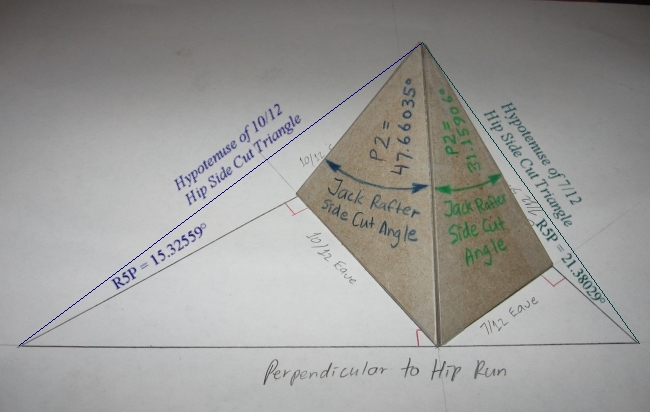 Hypotenuse of 10/12
Hip Side Cut Triangle
R5P = 15.32559°
10/12
P2 =
47.66035°
Jack Rafter
Side Cut
Angle
10/12 Eave
P2 =
Jack Rafter
Side Cut
Angle
7/12 Eave
Hypotenuse of 7/12
Hip Side Cut Triangle
R5P = 21.38029°
Perpendicular to Hip Run